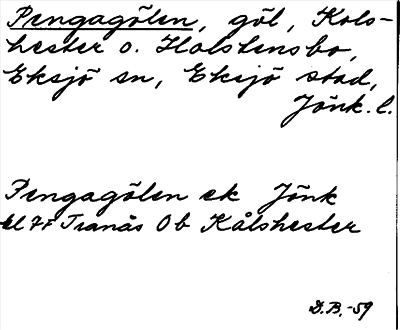 Pengagölen, göl, Kols-
hester o. Holstensbo,
Eksjö sn, Eksjö stad,
Jönk. l.
Pengagölen ek Jönk
bl 7f Tranås Ob Kålshester
D.B. -59